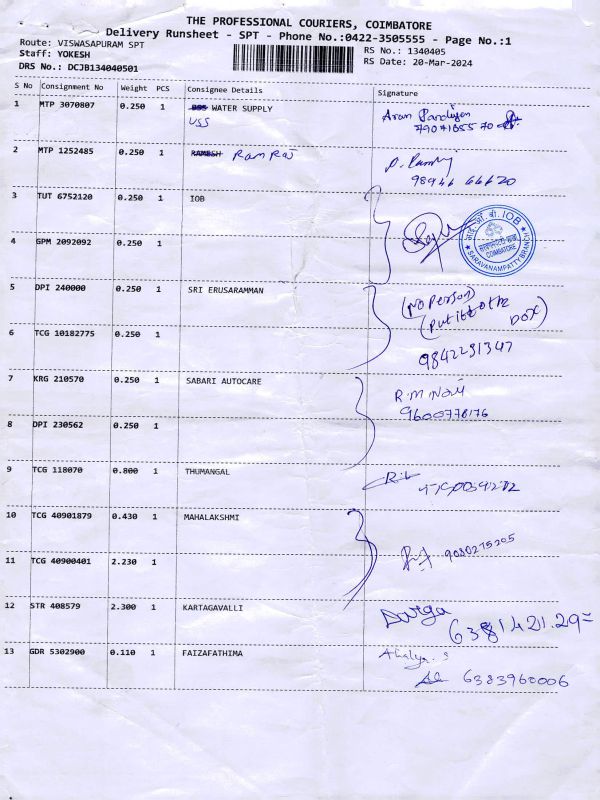 THE PROFESSIONAL COURIERS, COIMBATORE
Delivery Runsheet - SPT - Phone No.:0422-3505555 - Page No.:1
Route: VISWASAPURAM SPT
RS No.: 1340405
Staff: YOKESH
RS Date: 20-Mar-2024
DRS No.: DCJB134040501
S No Consignment No Weight PCS Consignee Details Signature
1 MTP 3070807 0.250 1 WATER SUPPLY
USS
2 MTP 1252485 0.250 1 RAMESH Ram Raj
98946 66620
3 TUT 6752120 0.250 1 IOB
IOB
COIMBATORE
SARAVANAMPATTY BRANCH
4 GPM 2092092 0.250 1
5 DPI 240000 0.250 1 SRI ERUSARAMMAN (No Person)
(Put it the Box)
6 TCG 10182775 0.250 1 9842291347
7 KRG 210570 0.250 1 SABARI AUTOCARE R.M
9600778176
8 DPI 230562 0.250 1
9 TCG 118070 0.800 1 THUMANGAL
10 TCG 40901879 0.430 1 MAHALAKSHMI
9080275205
11 TCG 40900401 2.230 1
12 STR 408579 2.300 1 KARTAGAVALLI Durga
13 GDR 5302900 0.110 1 FAIZAFATHIMA Ahalya. S
6383960006